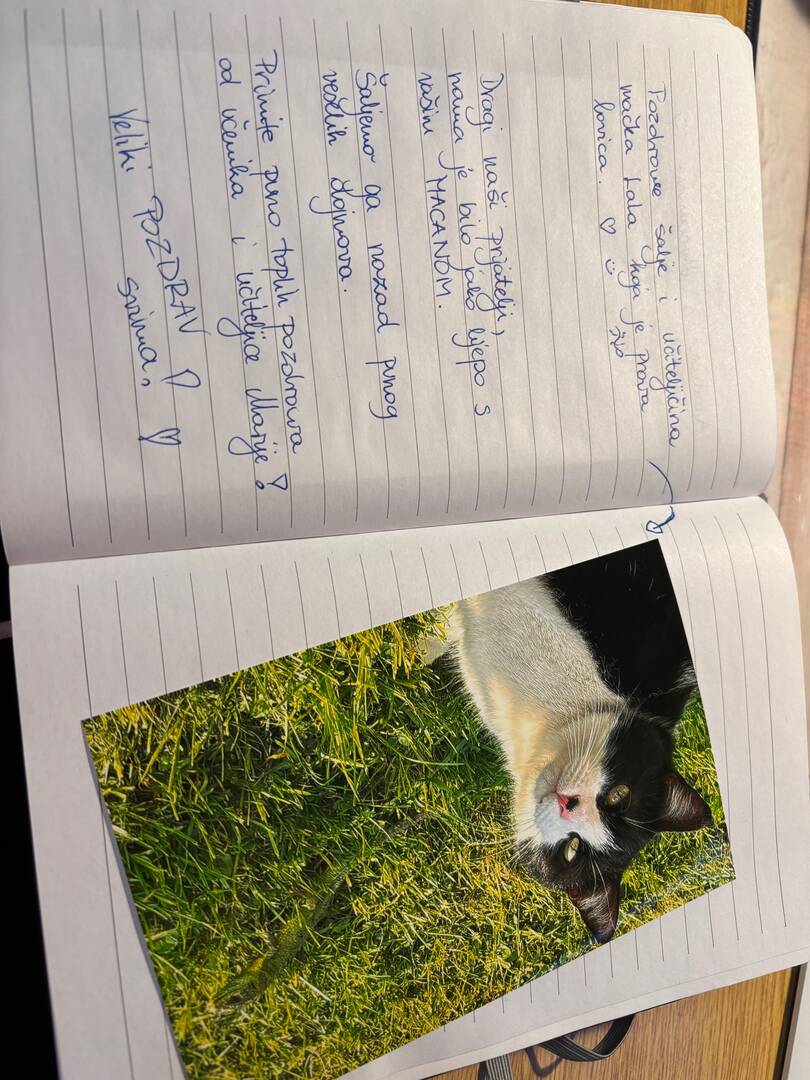 Pozdrave šalje i učiteljičina
mačka Lola koja je prava
lovica. ♡ ☺
Dragi naši prijatelji,
nama je bilo jako lijepo s
vašim MACANOM.
Šaljemo ga nazad punog
veselih dojmova.
Primite puno toplih pozdrava
od učenika i učiteljice Marije!
Veliki POZDRAV
svima! ♡